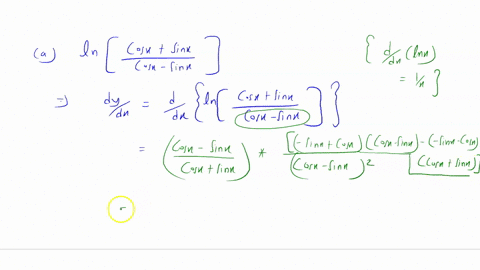 (a) ln [ (Cosx + sinx) / (Cosx - sinx) ]
{ d/dx (lnx)
= 1/x }
=) dy/dx = d/dx { ln [ (Cosx + sinx) / (Cosx - sinx) ] }
= ( (Cosx - sinx) / (Cosx + sinx) ) * [(-sinx + Cosx) (Cosx - sinx) - (-sinx - Cosx) (Cosx + sinx)] / (Cosx - sinx)²